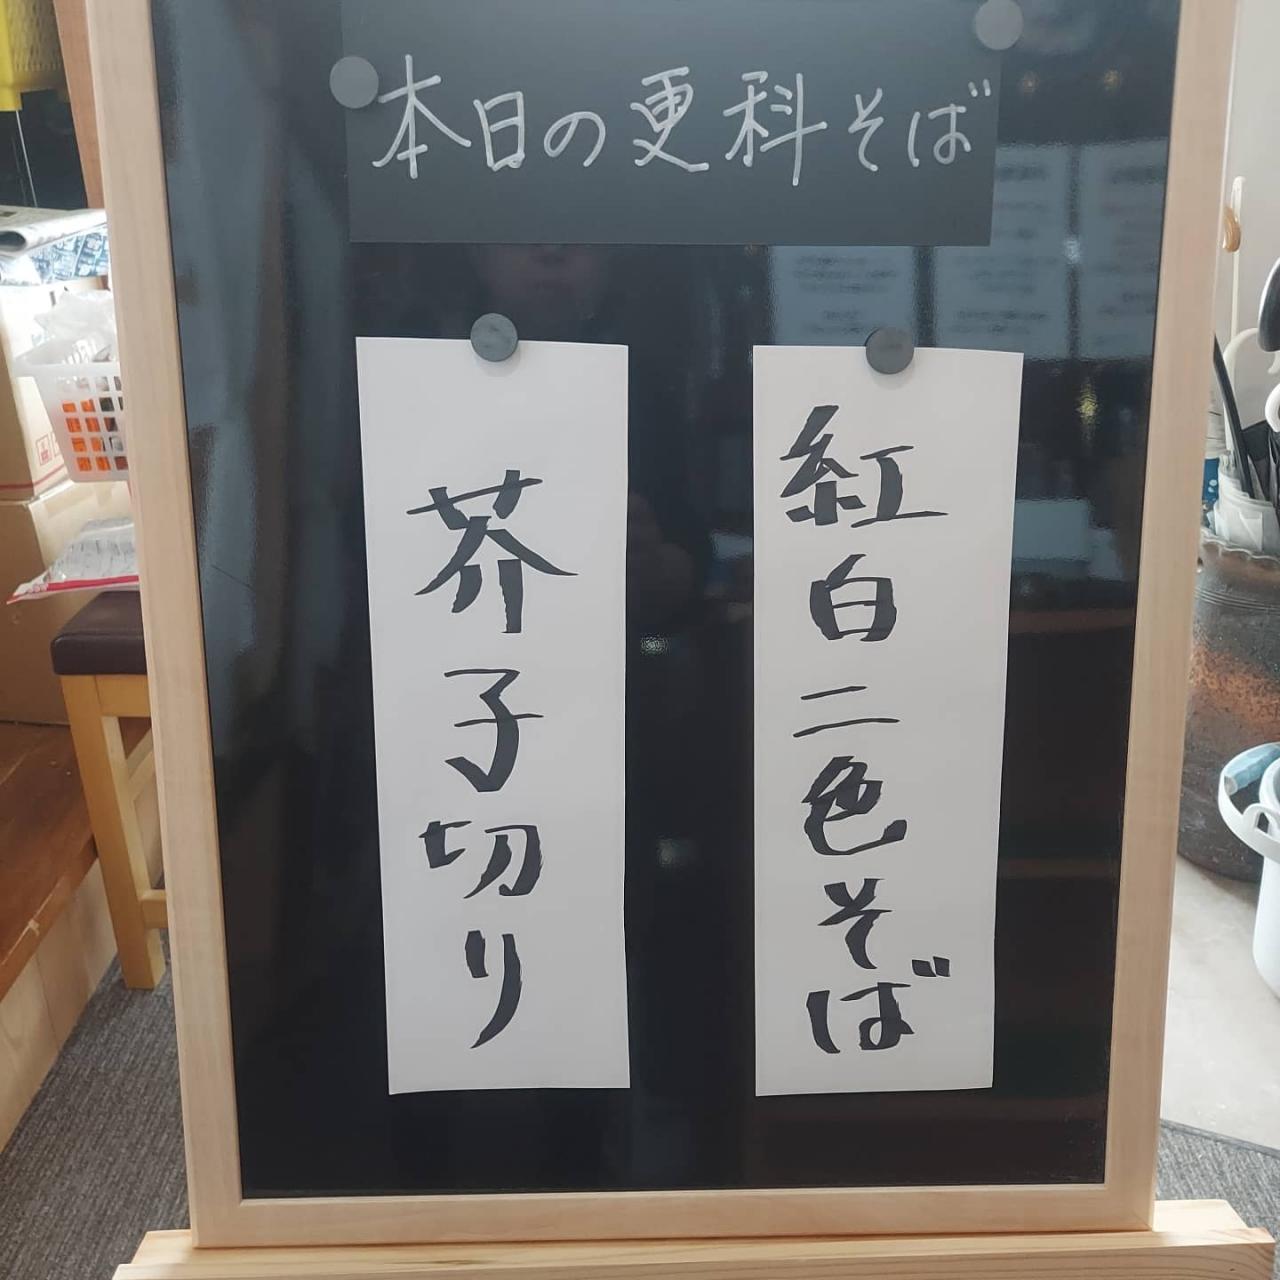 本日の更科そば
紅白二色そば
芥子切り